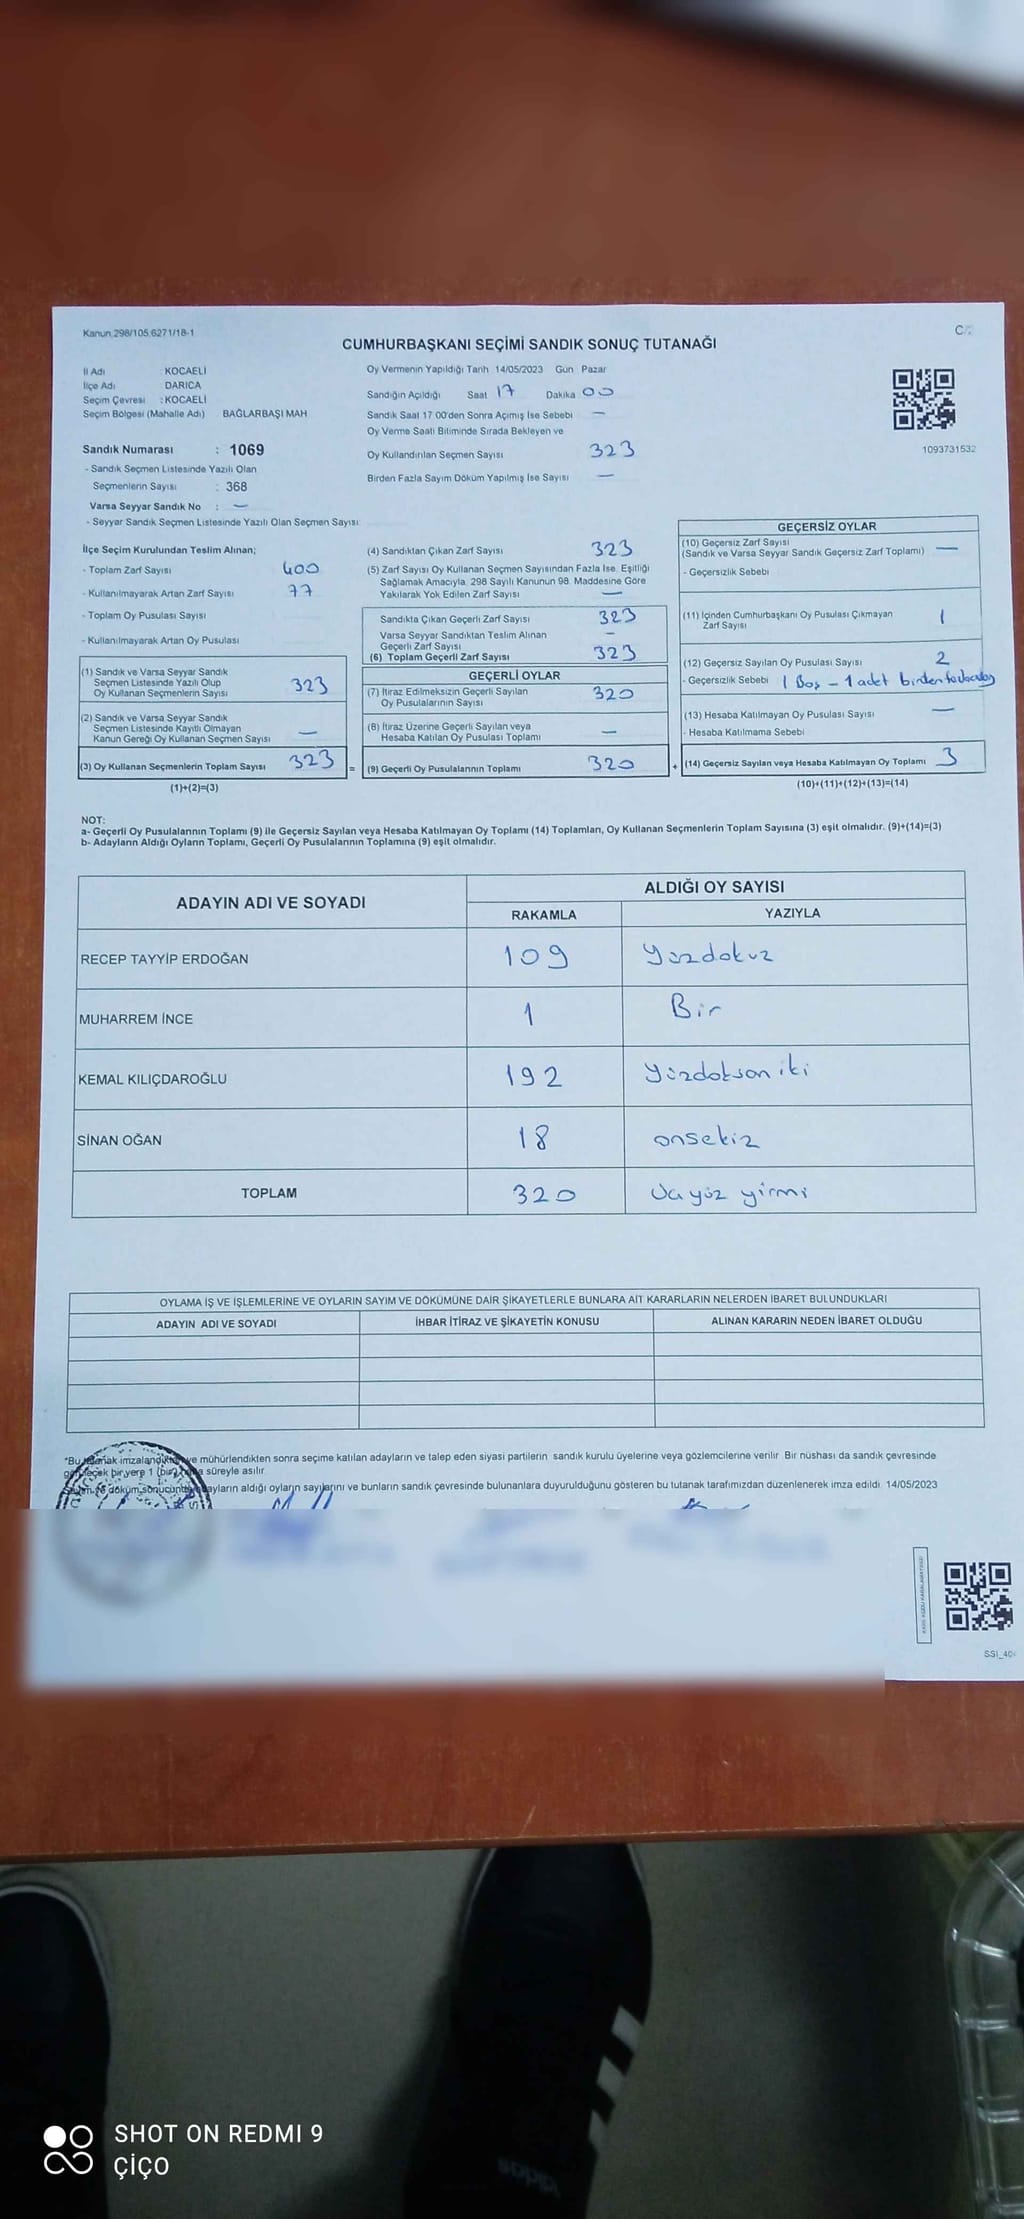 Kanun.298/105.6271/18-1
CUMHURBAŞKANI SEÇİMİ SANDIK SONUÇ TUTANAĞI
İl Adı : KOCAELİ
İlçe Adı : DARICA
Seçim Çevresi : KOCAELİ
Seçim Bölgesi (Mahalle Adı) BAĞLARBAŞI MAH
Sandık Numarası : 1069
- Sandık Seçmen Listesinde Yazılı Olan
Seçmenlerin Sayısı : 368
Varsa Seyyar Sandık No : —
- Seyyar Sandık Seçmen Listesinde Yazılı Olan Seçmen Sayısı:
Oy Vermenin Yapıldığı Tarih 14/05/2023 Gün Pazar
Sandığın Açıldığı Saat 17 Dakika 00
Sandık Saat 17 00'den Sonra Açımış İse Sebebi —
Oy Verme Saati Bitiminde Sırada Bekleyen ve
Oy Kullandırılan Seçmen Sayısı 323
Birden Fazla Sayım Döküm Yapılmış İse Sayısı —
1093731532
İlçe Seçim Kurulundan Teslim Alınan;
- Toplam Zarf Sayısı 400
- Kullanılmayarak Artan Zarf Sayısı 77
- Toplam Oy Pusulası Sayısı
- Kullanılmayarak Artan Oy Pusulası
(1) Sandık ve Varsa Seyyar Sandık
Seçmen Listesinde Yazılı Olup
Oy Kullanan Seçmenlerin Sayısı 323
(2) Sandık ve Varsa Seyyar Sandık
Seçmen Listesinde Kayıtlı Olmayan
Kanun Gereği Oy Kullanan Seçmen Sayısı —
(3) Oy Kullanan Seçmenlerin Toplam Sayısı 323
(1)+(2)=(3)
(4) Sandıktan Çıkan Zarf Sayısı 323
(5) Zarf Sayısı Oy Kullanan Seçmen Sayısından Fazla İse, Eşitliği
Sağlamak Amacıyla, 298 Sayılı Kanunun 98. Maddesine Göre
Yakılarak Yok Edilen Zarf Sayısı —
Sandıkta Çıkan Geçerli Zarf Sayısı 323
Varsa Seyyar Sandıktan Teslim Alınan
Geçerli Zarf Sayısı —
(6) Toplam Geçerli Zarf Sayısı 323
GEÇERLİ OYLAR
(7) İtiraz Edilmeksizin Geçerli Sayılan
Oy Pusulalarının Sayısı 320
(8) İtiraz Üzerine Geçerli Sayılan veya
Hesaba Katılan Oy Pusulası Toplamı —
= (9) Geçerli Oy Pusulalarının Toplamı 320
GEÇERSİZ OYLAR
(10) Geçersiz Zarf Sayısı
(Sandık ve Varsa Seyyar Sandık Geçersiz Zarf Toplamı) —
- Geçersizlik Sebebi
(11) İçinden Cumhurbaşkanı Oy Pusulası Çıkmayan
Zarf Sayısı 1
(12) Geçersiz Sayılan Oy Pusulası Sayısı 2
- Geçersizlik Sebebi 1 Boş - 1 adet birden
(13) Hesaba Katılmayan Oy Pusulası Sayısı —
- Hesaba Katılmama Sebebi
+ (14) Geçersiz Sayılan veya Hesaba Katılmayan Oy Toplamı 3
(10)+(11)+(12)+(13)=(14)
NOT:
a- Geçerli Oy Pusulalarının Toplamı (9) ile Geçersiz Sayılan veya Hesaba Katılmayan Oy Toplamı (14) Toplamları, Oy Kullanan Seçmenlerin Toplam Sayısına (3) eşit olmalıdır. (9)+(14)=(3)
b- Adayların Aldığı Oyların Toplamı, Geçerli Oy Pusulalarının Toplamına (9) eşit olmalıdır.
ADAYIN ADI VE SOYADI ALDIĞI OY SAYISI
RAKAMLA YAZIYLA
RECEP TAYYİP ERDOĞAN 109 Yüzdokuz
MUHARREM İNCE 1 Bir
KEMAL KILIÇDAROĞLU 192 Yüzdoksan iki
SİNAN OĞAN 18 onsekiz
TOPLAM 320 Üçyüz yirmi
OYLAMA İŞ VE İŞLEMLERİNE VE OYLARIN SAYIM VE DÖKÜMÜNE DAİR ŞİKAYETLERLE BUNLARA AİT KARARLARIN NELERDEN İBARET BULUNDUKLARI
ADAYIN ADI VE SOYADI İHBAR İTİRAZ VE ŞİKAYETİN KONUSU ALINAN KARARIN NEDEN İBARET OLDUĞU
imzalandıktan ve mühürlendikten sonra seçime katılan adayların ve talep eden siyasi partilerin sandık kurulu üyelerine veya gözlemcilerine verilir. Bir nüshası da sandık çevresinde
bir yere 1 (bir) süreyle asılır
döküm sonucunda adayların aldığı oyların sayılarını ve bunların sandık çevresinde bulunanlara duyurulduğunu gösteren bu tutanak tarafımızdan düzenlenerek imza edildi. 14/05/2023
SHOT ON REDMI 9
ÇİÇO